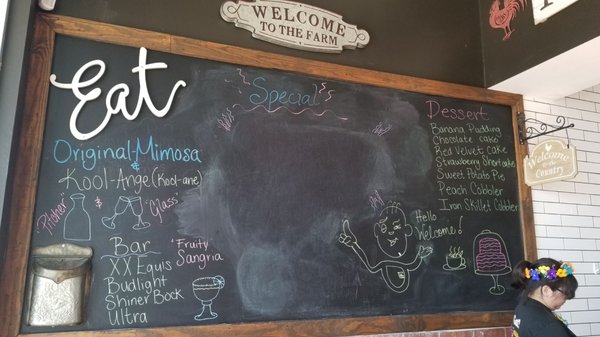 WELCOME
TO THE FARM
Eat
Special
Original Mimosa
&
Kool-Ange (Kool-ane)
"Pitcher"
"Glass"
Bar
XX Equis
Budlight
Shiner Bock
Ultra
"Fruity
Sangria
Hello...
Welcome!
Dessert
Banana Pudding
Chocolate cake
Red Velvet Cake
Strawberry Shortcake
Sweet Potato Pie
Peach Cobbler
Iron Skillet Cobbler
Welcome
to the
Country